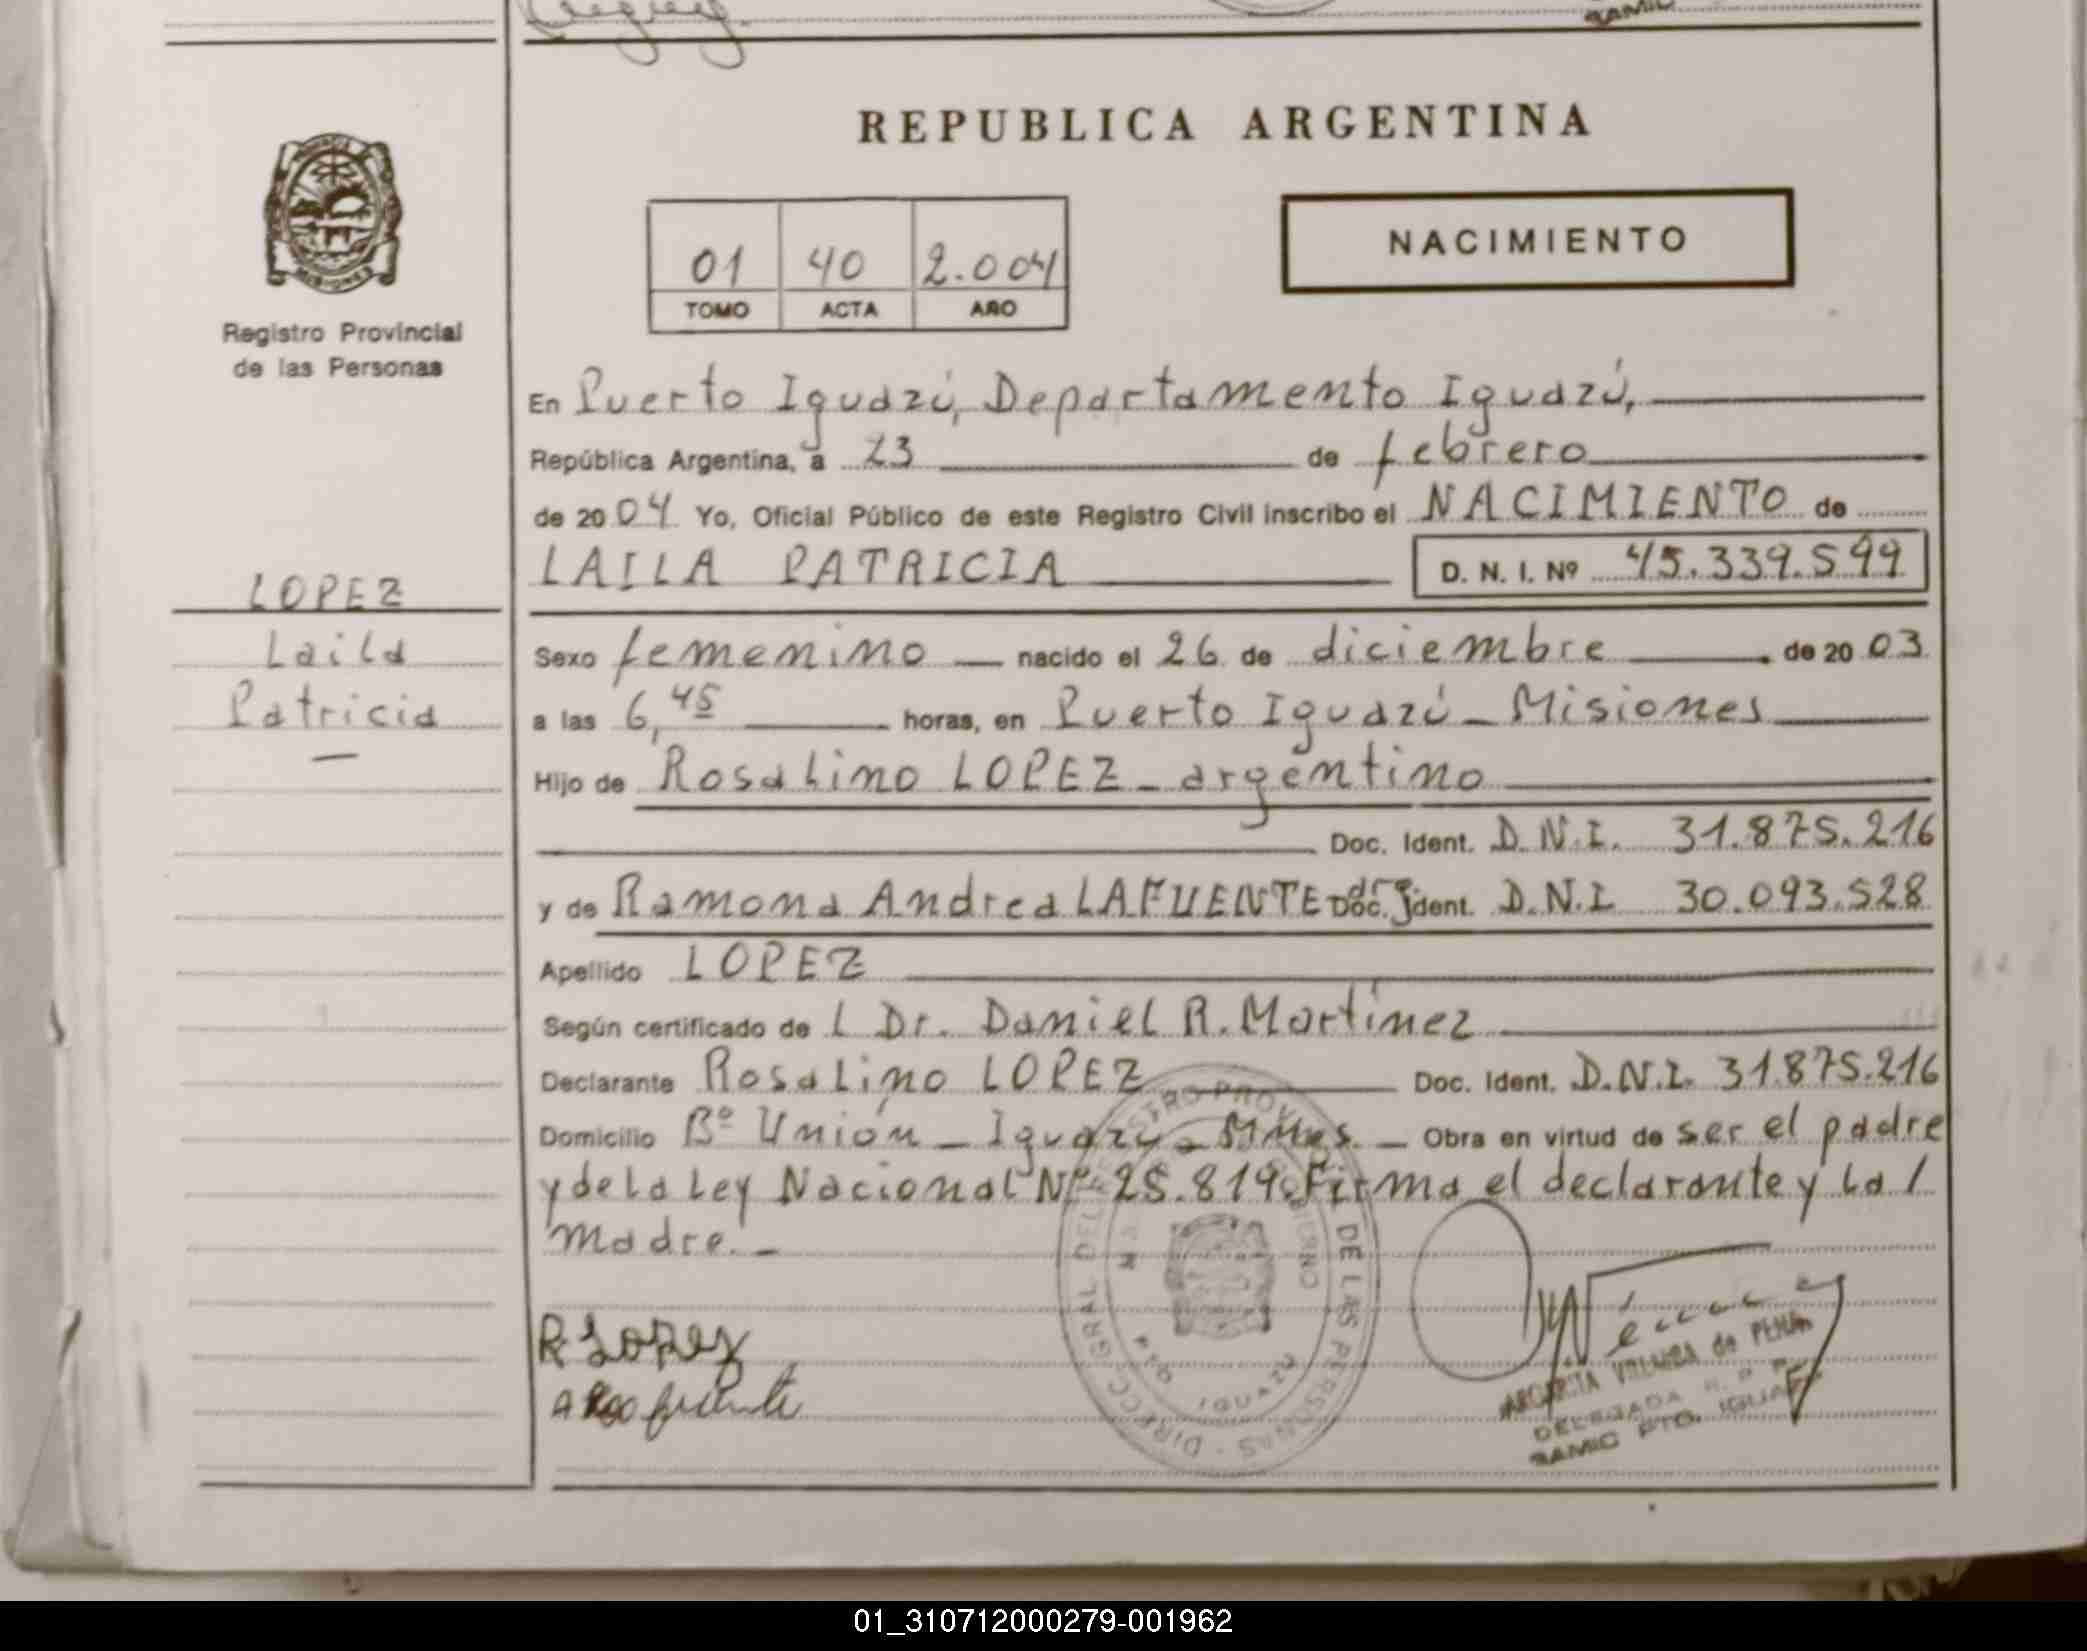 REPUBLICA ARGENTINA
01 40 2.004
TOMO ACTA AÑO
NACIMIENTO
Registro Provincial
de las Personas
LOPEZ
Laila
Patricia
—
En Puerto Iguazú, Departamento Iguazú,
República Argentina, a 23 de febrero
de 2004 Yo, Oficial Público de este Registro Civil inscribo el NACIMIENTO de
LAILA PATRICIA D. N. I. Nº 45.339.599
Sexo femenino nacido el 26 de diciembre de 2003
a las 6,45 horas, en Puerto Iguazú - Misiones
Hijo de Rosalino LOPEZ - argentino
Doc. Ident. D.N.I. 31.875.216
y de Ramona Andrea LAFUENTE arg. Doc. Ident. D.N.I. 30.093.528
Apellido LOPEZ
Según certificado de l Dr. Daniel R. Martínez
Declarante Rosalino LOPEZ Doc. Ident. D.N.I. 31.875.216
Domicilio Bº Unión - Iguazú - Mnes. - Obra en virtud de ser el padre
y de la Ley Nacional Nº 25.819. Firma el declarante y la /
madre. -
R Lopez
DIRECC. GRAL DEL REGISTRO PROVINCIAL DE LAS PERSONAS
IGUAZU
DELEGADA R. P. P.
SAMIC PTO. IGUAZU
01_310712000279-001962